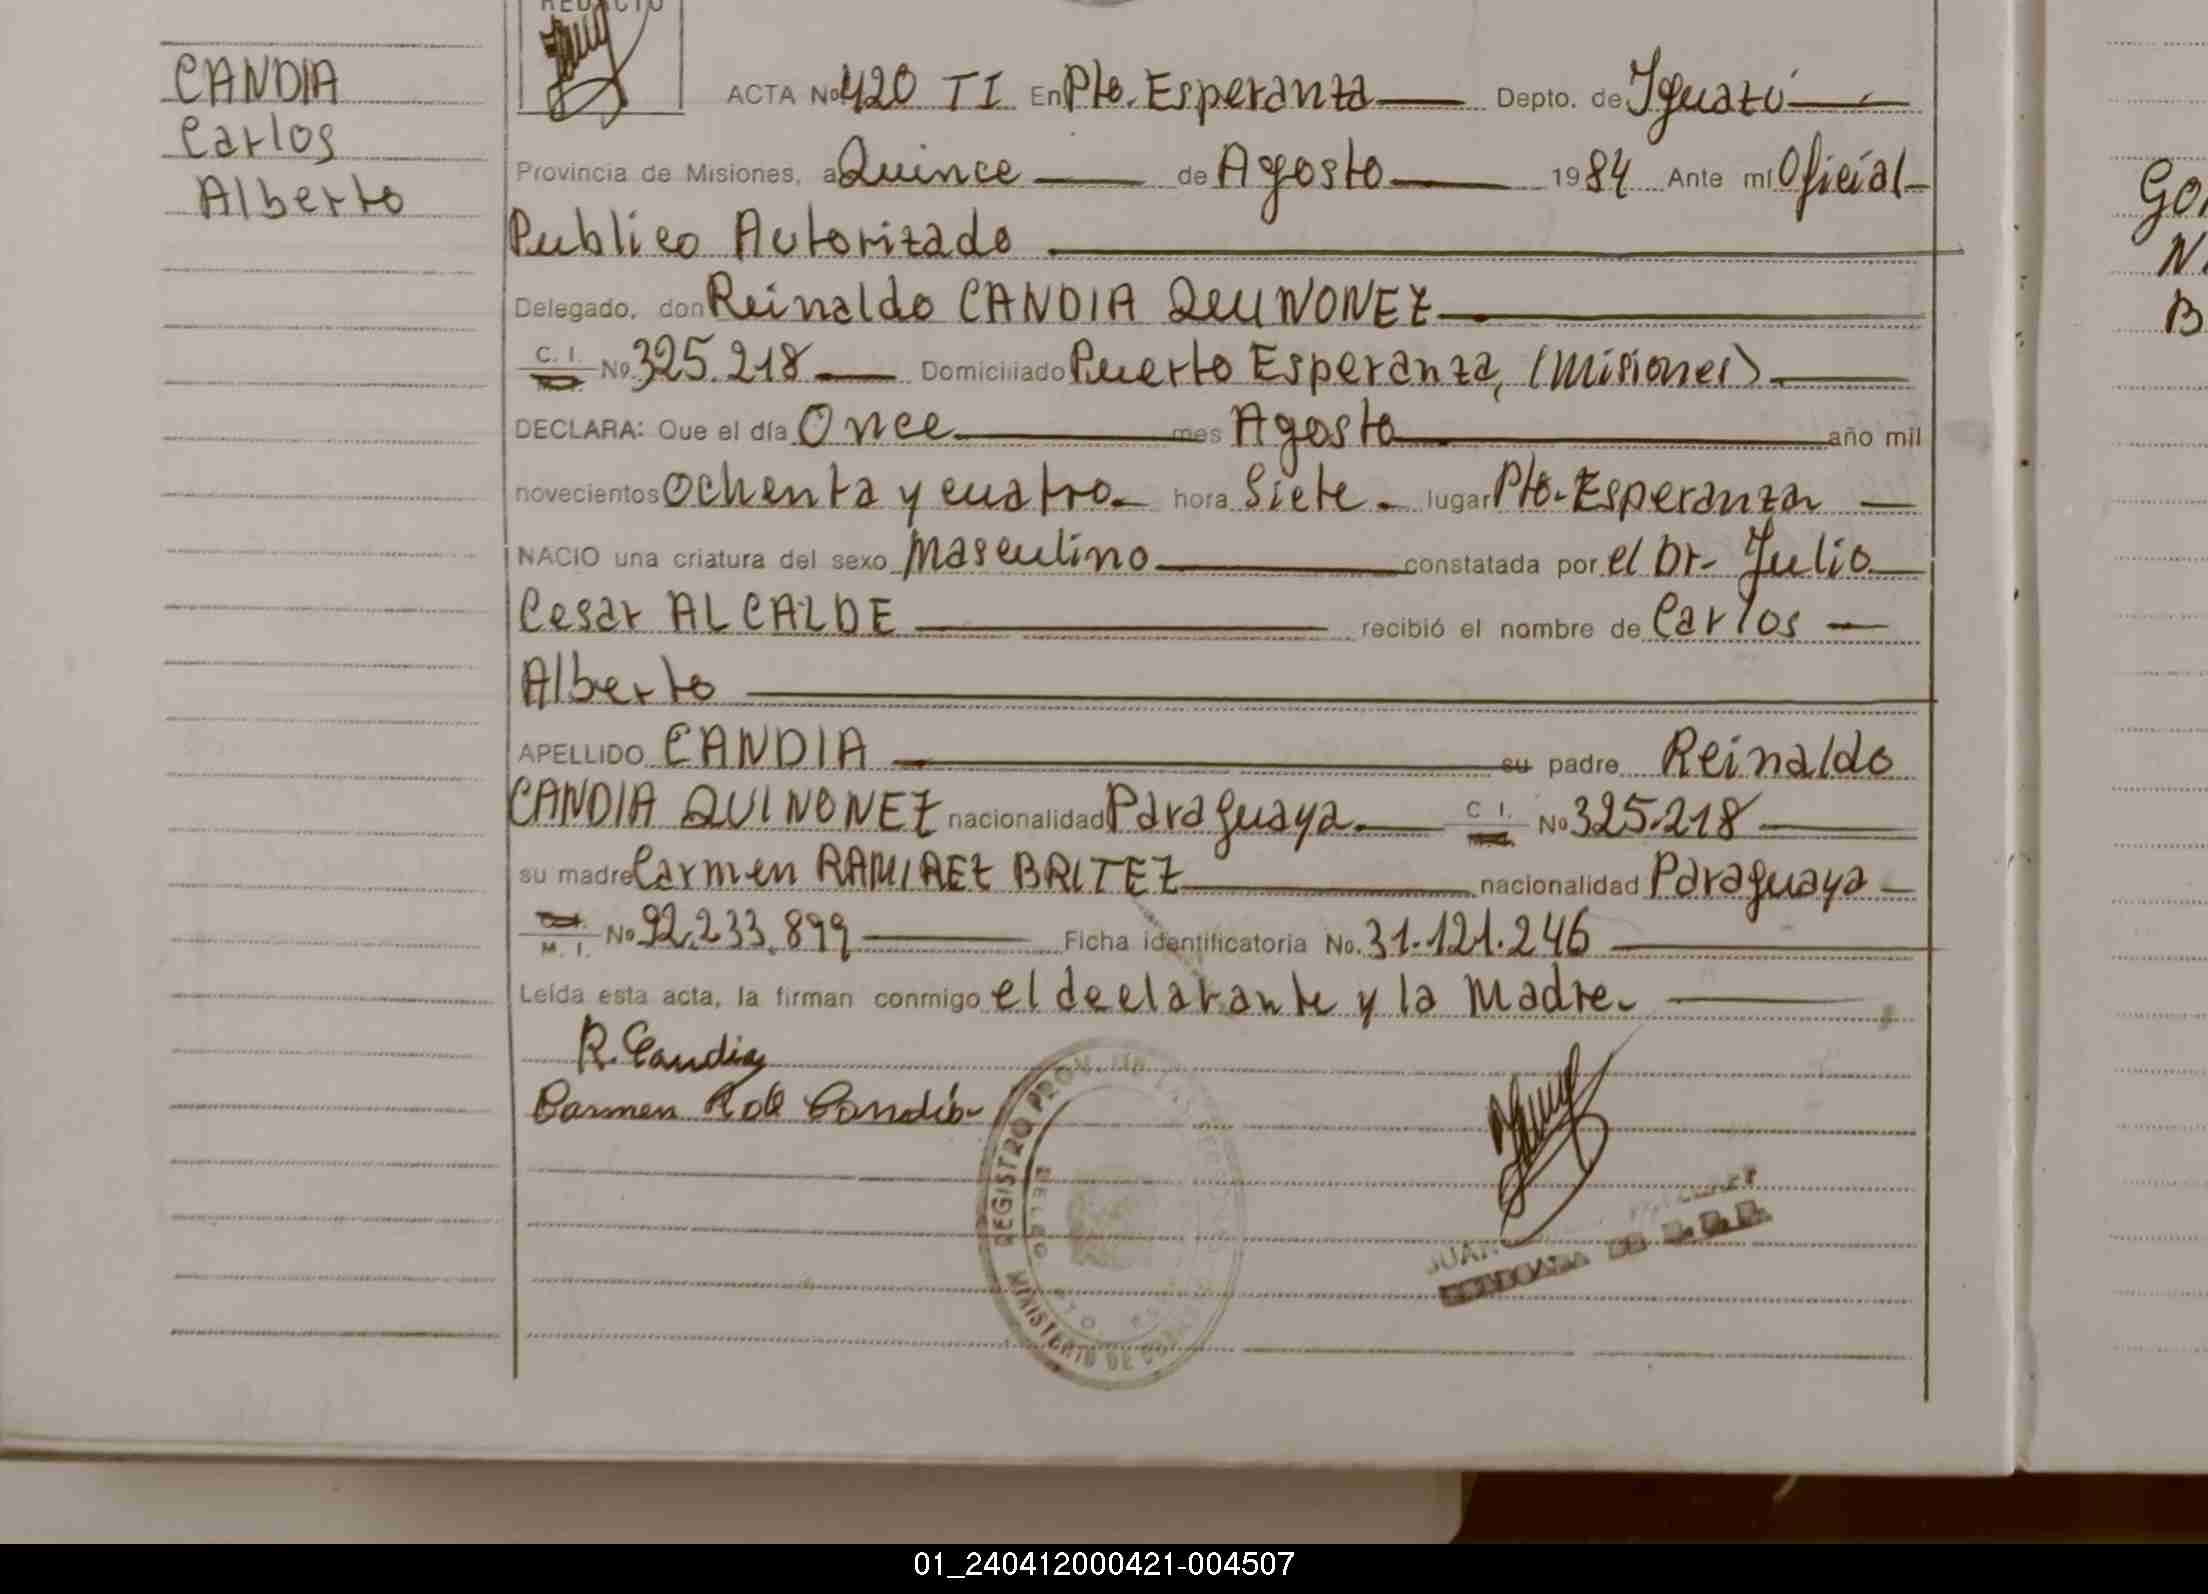 REDACTO
CANDIA
Carlos
Alberto
ACTA No 420 TI En Pto. Esperanza Depto. de Iguazú
Provincia de Misiones, a Quince de Agosto 1984 Ante mí Oficial
Publico Autorizado
Delegado, don Reinaldo CANDIA QUINONEZ
C. I. No. 325.218 Domiciliado Puerto Esperanza, (Misiones)
DECLARA: Que el día Once mes Agosto año mil
novecientos ochenta y cuatro hora Siete lugar Pto. Esperanza
NACIO una criatura del sexo Masculino constatada por el Dr. Julio
Cesar ALCALDE recibió el nombre de Carlos
Alberto
APELLIDO CANDIA su padre Reinaldo
CANDIA QUINONEZ nacionalidad Paraguaya C I. No 325.218
su madre Carmen RAMIREZ BRITEZ nacionalidad Paraguaya
M. I. No 92.233.899 Ficha identificatoria No. 31.121.246
Leída esta acta, la firman conmigo el declarante y la Madre.
R. Candia
Carmen R de Candia
REGISTRO PROV. DE LAS PERSONAS
MINISTERIO DE
JUAN
GO
N
B
01_240412000421-004507